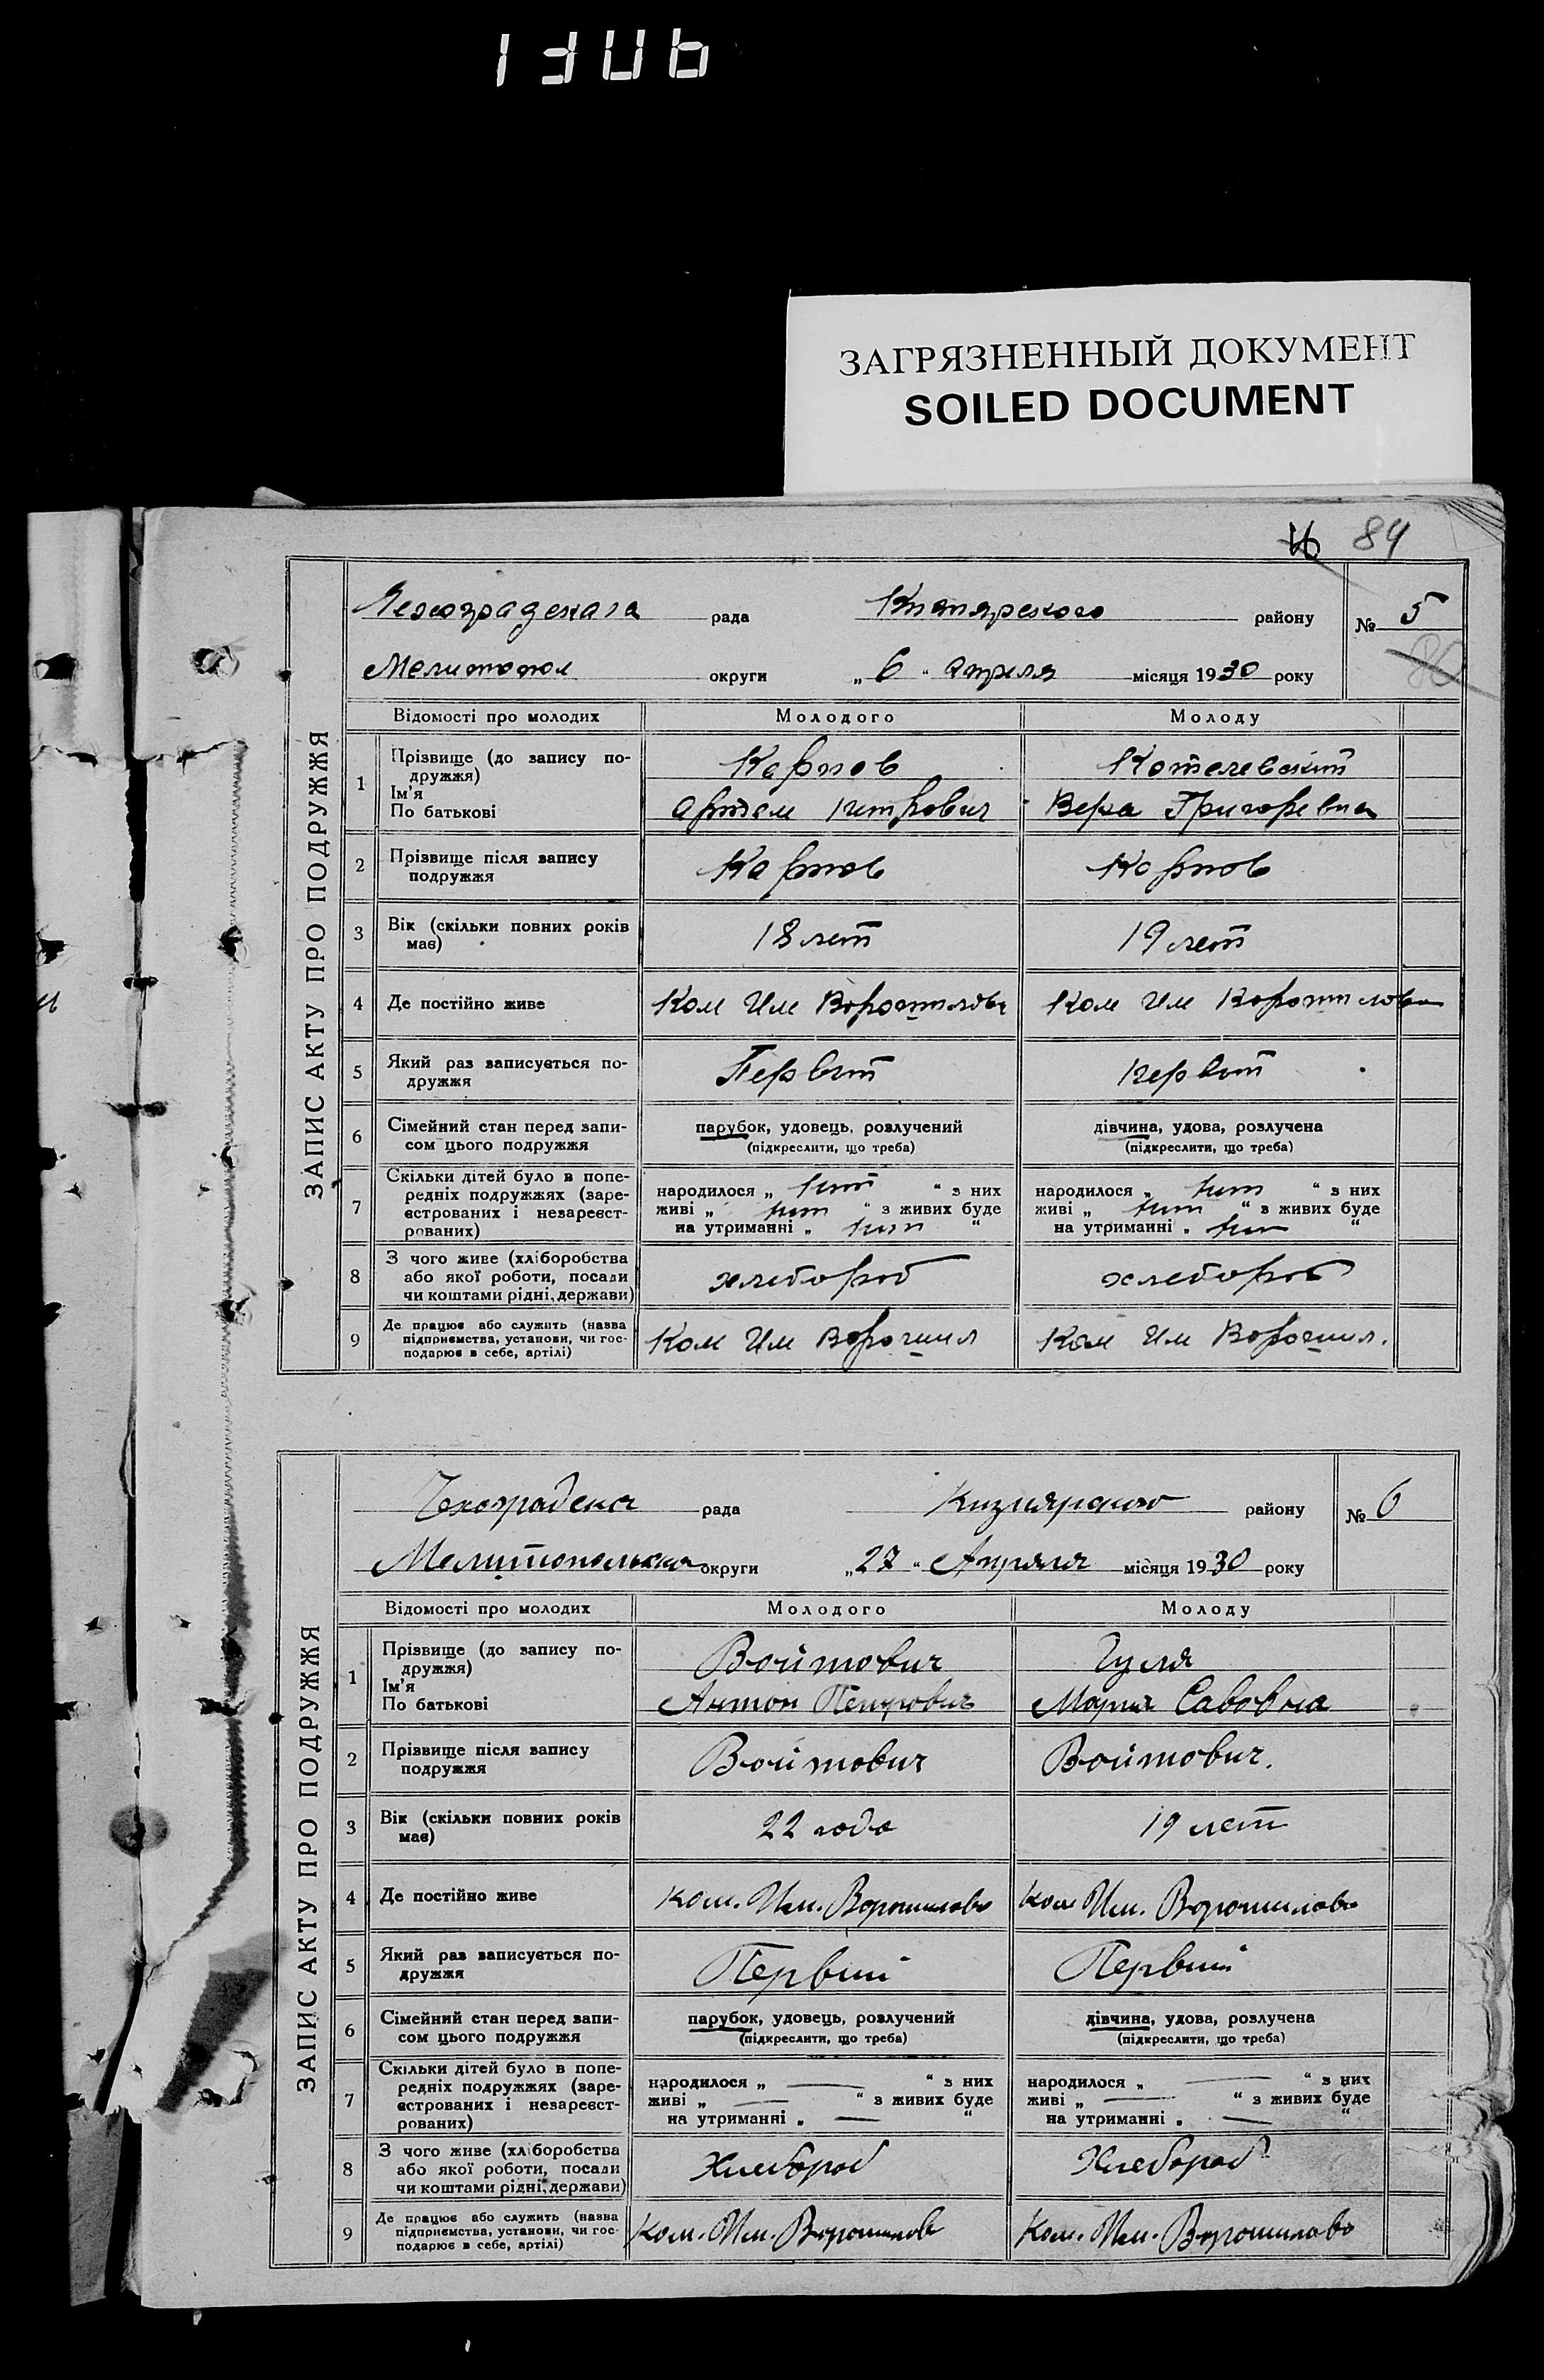 1306
ЗАГРЯЗНЕННЫЙ ДОКУМЕНТ
SOILED DOCUMENT
84
ЗАПИС АКТУ ПРО ПОДРУЖЖЯ
рада района
рада району № 5
Мелитопол округи „ 6 “ апреля місяця 1930 року
Відомості про молодих Молодого Молоду
1 Прізвище (до запису подружжя) Карпов Котелевский
Ім'я
По батькові Артем Петрович Вера Григоревна
2 Прізвище після запису подружжя Карпов Карпов
3 Вік (скільки повних років має) 18 лет 19 лет
4 Де постійно живе Ком Им Ворошилова Ком Им Ворошилова
5 Який раз записується подружжя Первит первит
6 Сімейний стан перед записом цього подружжя парубок, удовець, розлучений дівчина, удова, розлучена
(підкреслити, що треба) (підкреслити, що треба)
7 Скільки дітей було в попередніх подружжях (зареєстрованих і незареєстрованих)
народилося „ нит “ з них народилося „ нит “ з них
живі „ нит “ з живих буде живі „ нит “ з живих буде
на утриманні „ нит “ на утриманні „ нит “
8 З чого живе (хліборобства або якої роботи, посади чи коштами рідні, держави) хлебороб хлебороб
9 Де працює або служить (назва підприємства, установи, чи господарює в себе, артілі) Ком Им Ворошил Ком Им Ворошил.
ЗАПИС АКТУ ПРО ПОДРУЖЖЯ
Чехоградска рада Кизиярского району № 6
Мелитопольская округи „27“ Апреля місяця 1930 року
Відомості про молодих Молодого Молоду
1 Прізвище (до запису подружжя) Войтович Гуля
Ім'я
По батькові Антон Петрович Мария Савовна
2 Прізвище після запису подружжя Войтович Войтович.
3 Вік (скільки повних років має) 22 года 19 лет
4 Де постійно живе Ком. Им. Ворошилова Ком Им. Ворошилова
5 Який раз записується подружжя Первий Первий
6 Сімейний стан перед записом цього подружжя парубок, удовець, розлучений дівчина, удова, розлучена
(підкреслити, що треба) (підкреслити, що треба)
7 Скільки дітей було в попередніх подружжях (зареєстрованих і незареєстрованих)
народилося „ — “ з них народилося „ — “ з них
живі „ — “ з живих буде живі „ — “ з живих буде
на утриманні „ — “ на утриманні „ — “
8 З чого живе (хліборобства або якої роботи, посади чи коштами рідні, держави) Хлебороб Хлебороб
9 Де працює або служить (назва підприємства, установи, чи господарює в себе, артілі) Ком. Им. Ворошилова Ком. Им. Ворошилова